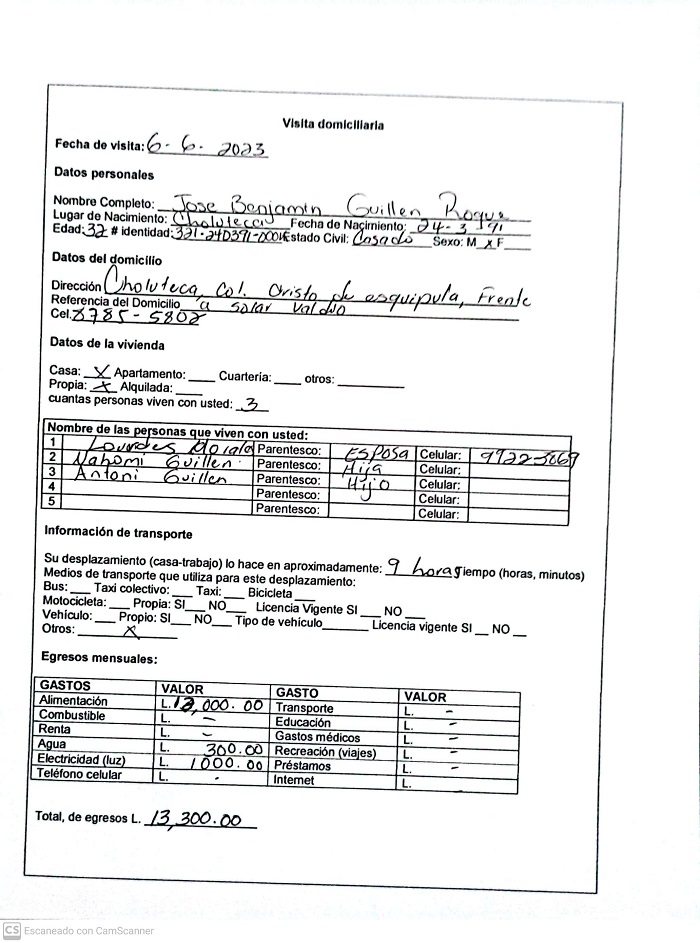 Visita domiciliaria
Fecha de visita: 6 - 6 - 2023
Datos personales
Nombre Completo: Jose Benjamin Guillen Roque
Lugar de Nacimiento: Choluteca Fecha de Nacimiento: 24 - 3 - 91
Edad: 32 # identidad: Estado Civil: Casado Sexo: M x F
Datos del domicilio
Dirección Choluteca, Col. Cristo de esquipula, Frente
Referencia del Domicilio a solar valdio
Cel. 8785-5802
Datos de la vivienda
Casa: X Apartamento: ____ Cuartería: ____ otros: ____
Propia: X Alquilada: ____
cuantas personas viven con usted: 3
Nombre de las personas que viven con usted:
1 Lourdes Parentesco: Esposa Celular: 9922-3069
2 Nahomi Guillen Parentesco: Hija Celular:
3 Antoni Guillen Parentesco: Hijo Celular:
4 Parentesco: Celular:
5 Parentesco: Celular:
Información de transporte
Su desplazamiento (casa-trabajo) lo hace en aproximadamente: 9 horas Tiempo (horas, minutos)
Medios de transporte que utiliza para este desplazamiento:
Bus: ___ Taxi colectivo: ___ Taxi: ___ Bicicleta ___
Motocicleta: ___ Propia: SI___ NO___ Licencia Vigente SI ___ NO ___
Vehículo: ___ Propio: SI___ NO___ Tipo de vehículo_______ Licencia vigente SI __ NO __
Otros: X
Egresos mensuales:
GASTOS VALOR GASTO VALOR
Alimentación L. 12,000.00 Transporte L. -
Combustible L. - Educación L. -
Renta L. - Gastos médicos L. -
Agua L. 300.00 Recreación (viajes) L. -
Electricidad (luz) L. 1000.00 Préstamos L. -
Teléfono celular L. - Internet L.
Total, de egresos L. 13,300.00
CS Escaneado con CamScanner